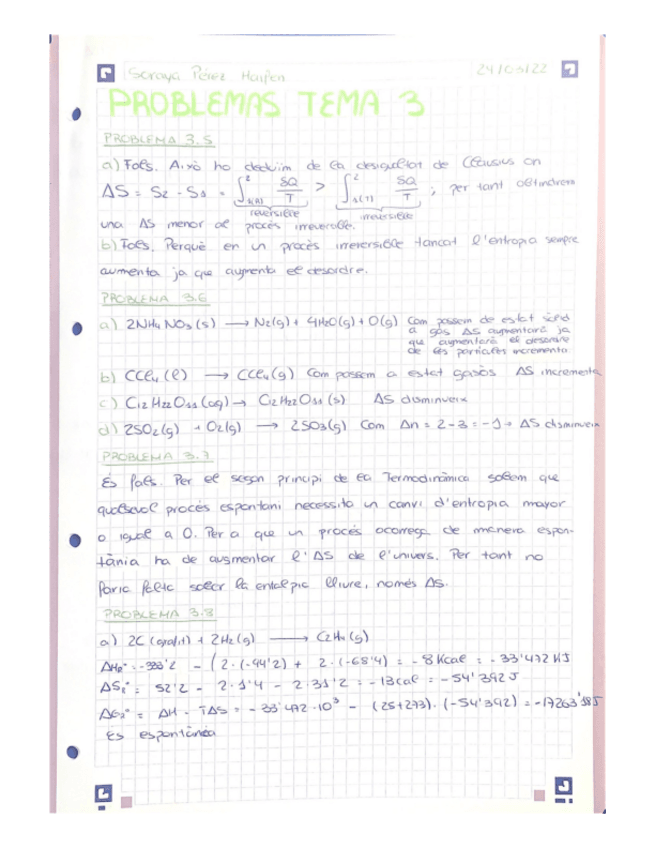 Soraya Pérez 24/03/22
PROBLEMAS TEMA 3
PROBLEMA 3.5
a) Fals. Això ho deduïm de la desigualtat de Clausius on
ΔS = S2 - S1 = ∫1(R)2 δQ/T > ∫1(I)2 δQ/T ; per tant obtindrem
reversible irreversible
una ΔS menor al procés irreversible.
b) Fals. Perquè en un procés irreversible tancat l'entropia sempre
aumenta ja que augmenta el desordre.
PROBLEMA 3.6
a) 2NH4NO3(s) → N2(g) + 4H2O(g) + O(g) Com passem de estat sòlid
a gas ΔS augmentarà ja
que augmentarà el desordre
de les partícules incrementa
b) CCl4(l) → CCl4(g) Com passem a estat gasós ΔS incrementa
c) C12H22O11(aq) → C12H22O11(s) ΔS disminueix
d) 2SO2(g) + O2(g) → 2SO3(g) Com Δn = 2-3 = -1 → ΔS disminueix
PROBLEMA 3.7
És fals. Per el segon principi de la Termodinàmica sabem que
qualsevol procés espontani necessita un canvi d'entropia mayor
o igual a 0. Per a que un procés ocorrega de manera espon-
tània ha de augmentar l'ΔS de l'univers. Per tant no
faria falta saber la entalpia lliure, només ΔS.
PROBLEMA 3.8
a) 2C(grafit) + 2H2(g) → C2H4(g)
- (2·(-94'2) + 2·(-68'4) = -8Kcal = -33'472 KJ
= 52'2 - 2·1'4 - 2·31'2 = -13cal = -54'392 J
= ΔH - TΔS = -33'472·10³ - (25+273)·(-54'392) = -17263'185J
Es espontánea